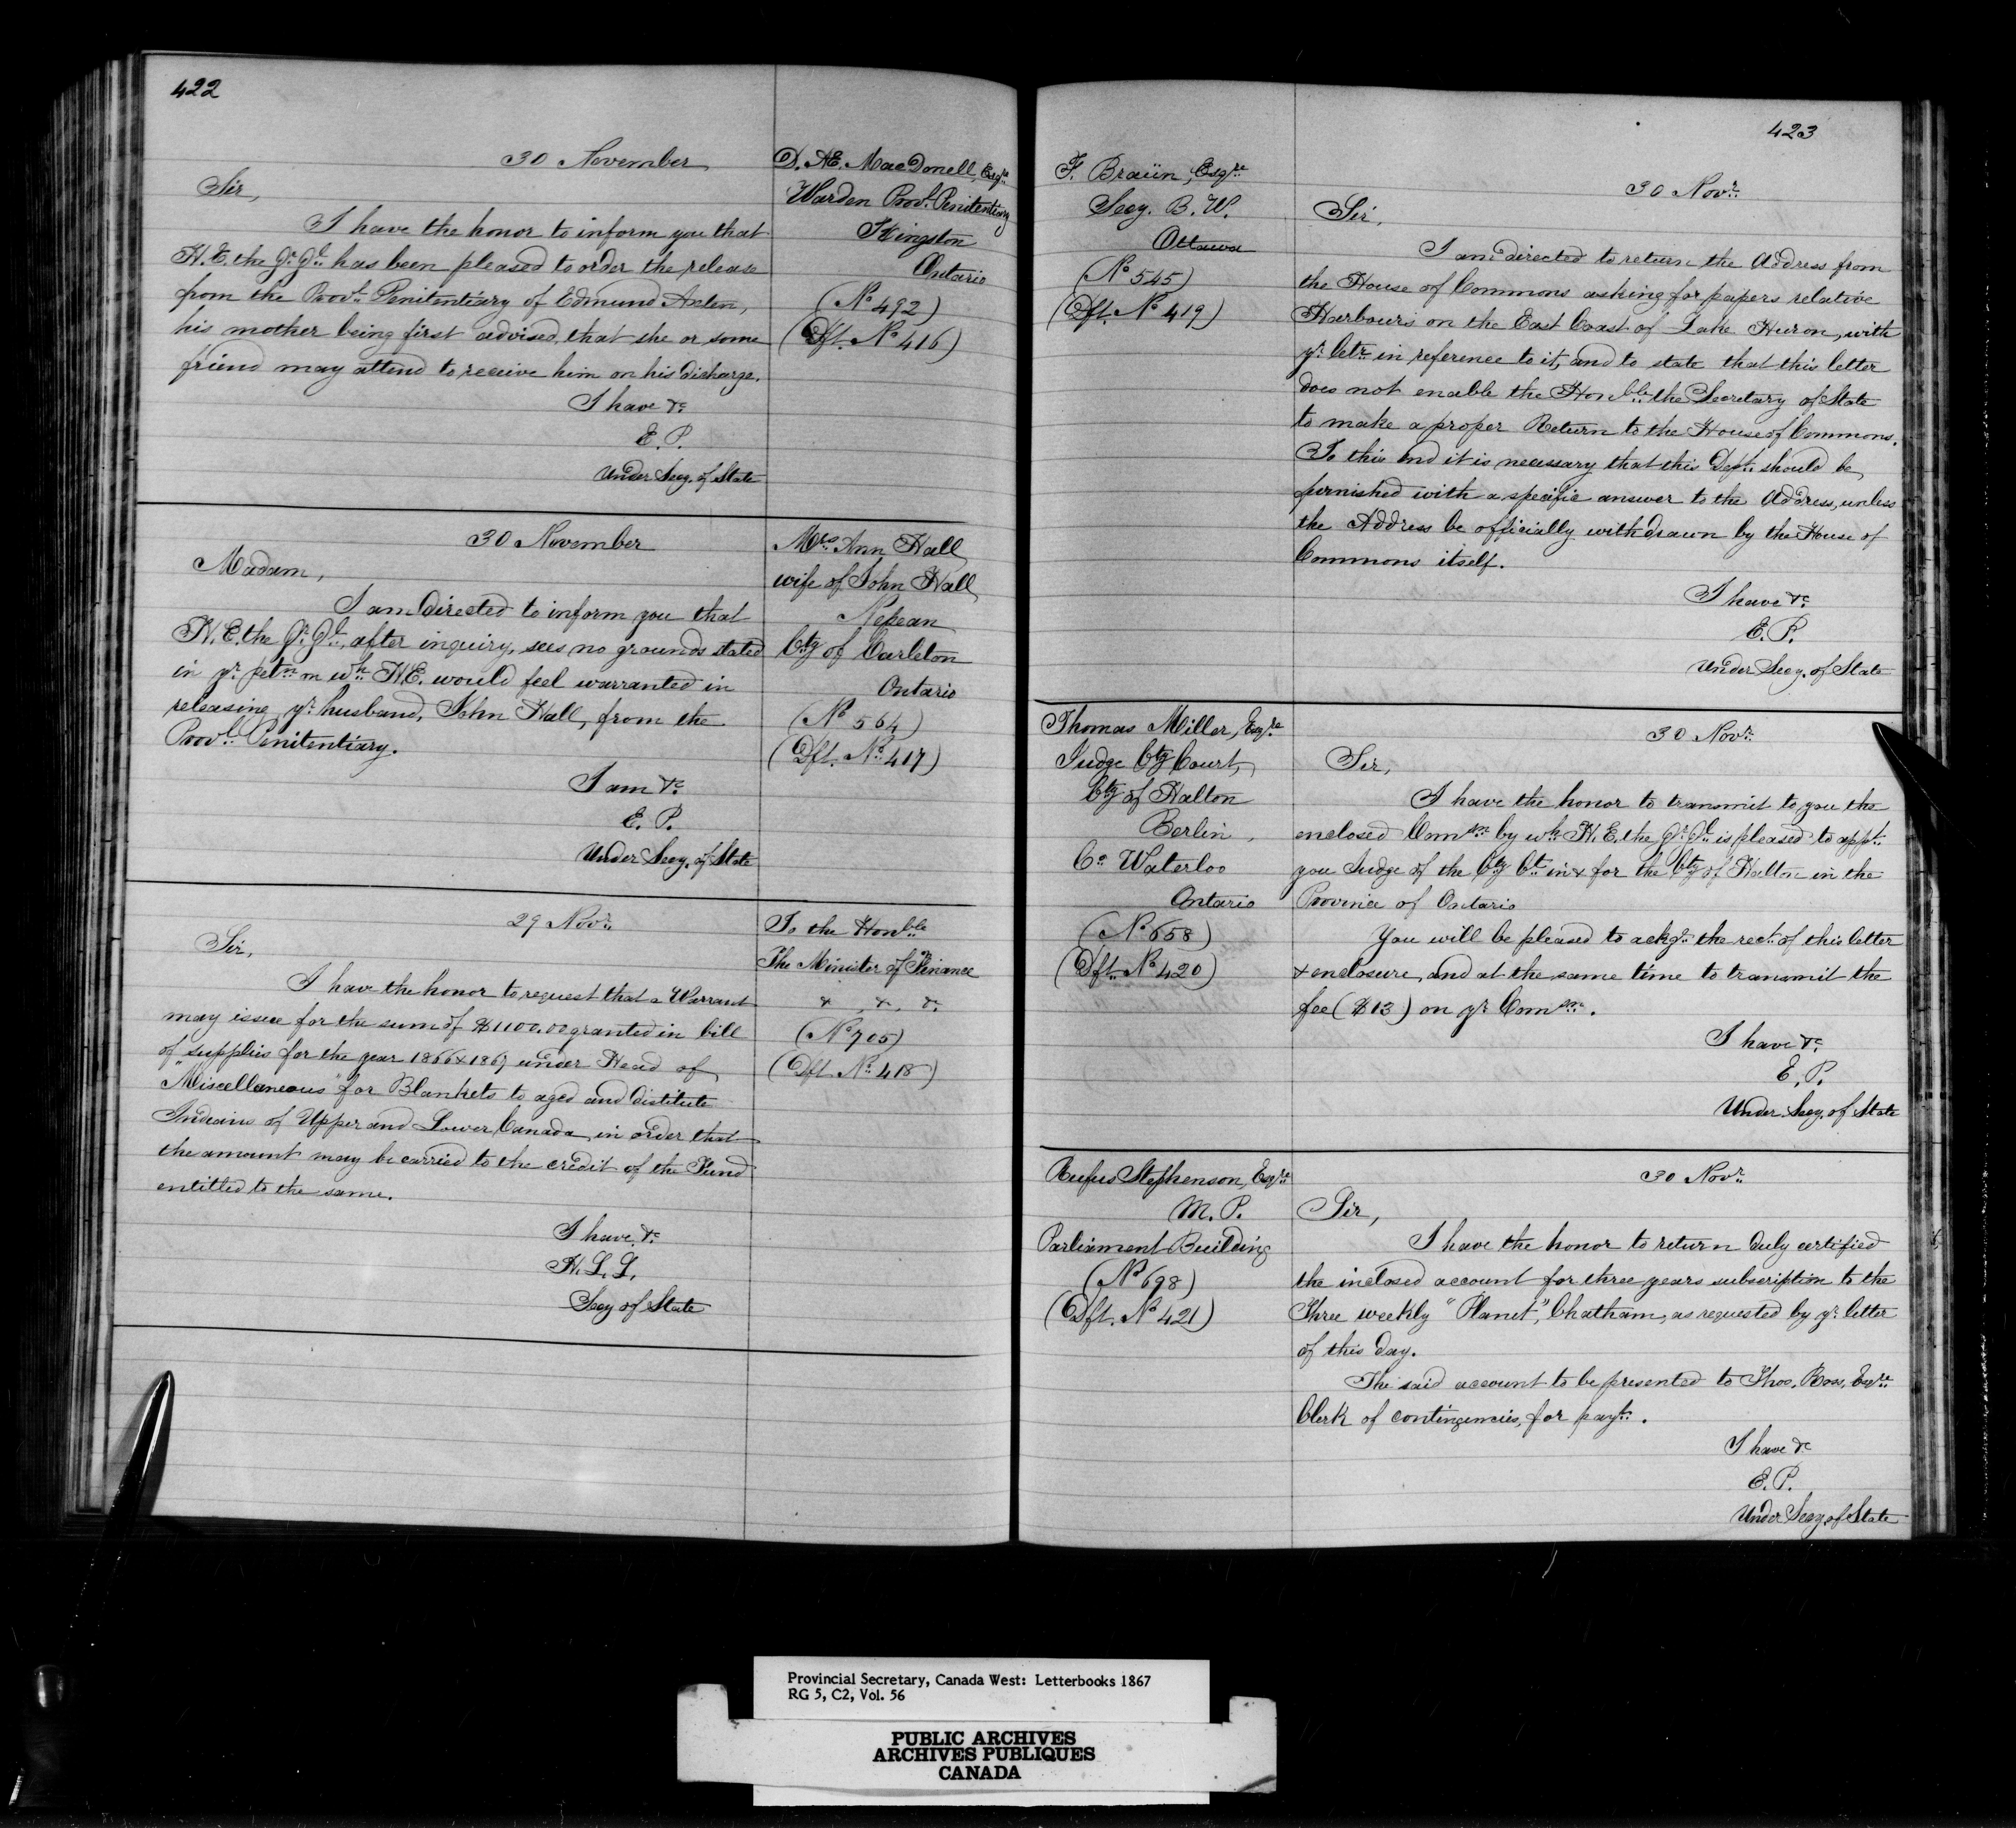 422
30 November
Sir,
I have the honor to inform you that
H.E. the Gr. Gl. has been pleased to order the release
from the Provl. Penitentiary of Edmund
his mother being first advised, that she or some
friend may attend to receive him on his discharge.
I have &c
E. P.
Under Secy. of State
D. Æ. MacDonell, Esqre
Warden Provl. Penitentiary
Kingston
Ontario
(No 492)
(Dft. No 416)
30 November
Madam,
I am directed to inform you that
H.E. the Gr. Gl., after inquiry, sees no grounds stated
in yr. petn. on wh. H.E. would feel warranted in
releasing yr. husband, John Hall, from the
Provl. Penitentiary.
I am &c
E. P.
Under Secy. of State
Mrs Ann Hall
wife of John Hall
Nepean
Cty of Carleton
Ontario
(No 564)
(Dft. No 417)
29 Novr.
Sir,
I have the honor to request that a Warrant
may issue for the sum of $1100.00 granted in bill
of supplies for the year 1866 & 1867 under Head of
"Miscellaneous" for Blankets to aged and distitute
Indians of Upper and Lower Canada, in order that
the amount may be carried to the credit of the Fund
entitled to the same.
I have &c
H. L. L.
Secy of State
To the Honble
The Minister of Finance
& &. &c
(No 705)
(Dft. No 418)
423
F. Braün, Esqre
Secy. B. W.
Ottawa
(No 545)
(Dft. No 419)
30 Novr.
Sir,
I am directed to return the Address from
the House of Commons asking for papers relative
Harbours on the East Coast of Lake Huron, with
yr. letr. in reference to it, and to state that this letter
does not enable the Honble. the Secretary of State
to make a proper Return to the House of Commons.
To this end it is necessary that this Dept. should be
furnished with a specific answer to the Address, unless
the Address be officially withdrawn by the House of
Commons itself.
I have &c
E. P.
Under Secy. of State
Thomas Miller, Esqre
Judge Cty Court,
Cty of Halton
Berlin,
Co Waterloo
Ontario
(No 658)
(Dft. No 420)
30 Novr.
Sir,
I have the honor to transmit to you the
enclosed Comsn. by wh. H.E. the Gr. Gl. is pleased to appt.
you Judge of the Cty Ct. in & for the Cty of Halton in the
Province of Ontario
You will be pleased to ackge. the rect. of this letter
& enclosure, and at the same time to transmit the
fee ($13) on yr. Comsn.
I have &c
E. P.
Under Secy. of State
Rufus Stephenson, Esqre
M. P.
Parliament Building
(No 698)
(Dft. No 421)
30 Novr.
Sir,
I have the honor to return duly certified
the inclosed account for three years subscription to the
Three weekly "Planet", Chatham, as requested by yr. letter
of this day.
The said account to be presented to Thos. Ross, Esqre
Clerk of contingencies, for payt.
I have &c
E. P.
Under Secy. of State
Provincial Secretary, Canada West: Letterbooks 1867
RG 5, C2, Vol. 56
PUBLIC ARCHIVES
ARCHIVES PUBLIQUES
CANADA